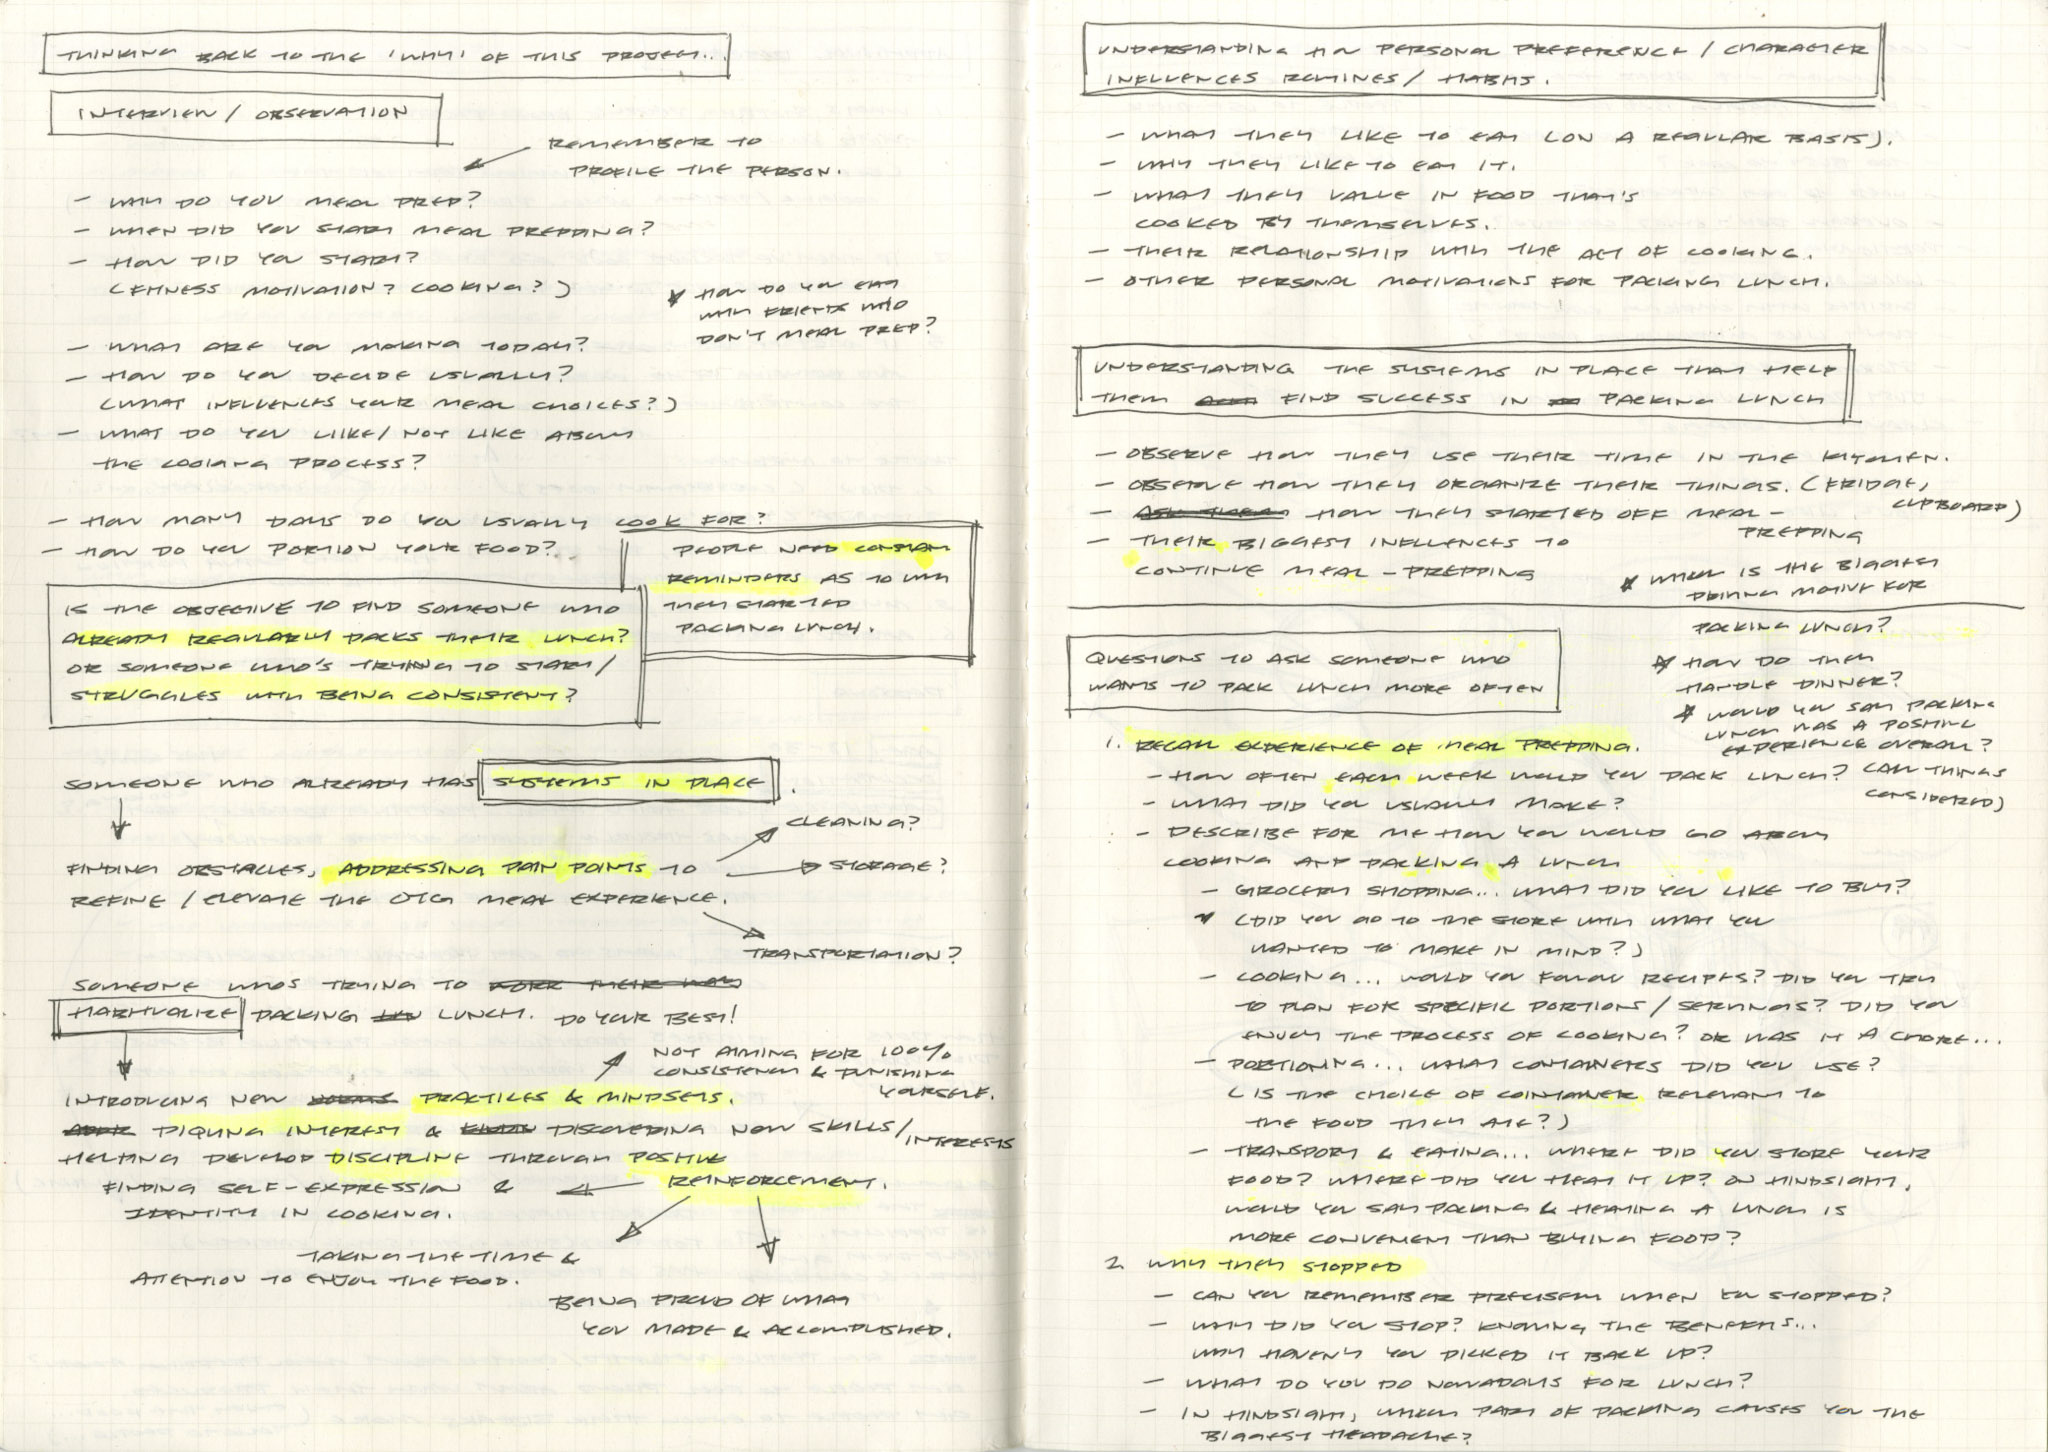 THINKING BACK TO THE 'WHY' OF THIS PROJECT...
INTERVIEW / OBSERVATION
REMEMBER TO
PROFILE THE PERSON.
- WHY DO YOU MEAL PREP?
- WHEN DID YOU START MEAL PREPPING?
- HOW DID YOU START?
(FITNESS MOTIVATION? COOKING?)
* HOW DO YOU EAT
WITH FRIENDS WHO
DON'T MEAL PREP?
- WHAT ARE YOU MAKING TODAY?
- HOW DO YOU DECIDE USUALLY?
(WHAT INFLUENCES YOUR MEAL CHOICES?)
- WHAT DO YOU LIKE / NOT LIKE ABOUT
THE COOKING PROCESS?
- HOW MANY DAYS DO YOU USUALLY COOK FOR?
- HOW DO YOU PORTION YOUR FOOD?
PEOPLE NEED CONSTANT
REMINDERS AS TO WHY
THEY STARTED
PACKING LUNCH.
IS THE OBJECTIVE TO FIND SOMEONE WHO
ALREADY REGULARLY PACKS THEIR LUNCH?
OR SOMEONE WHO'S TRYING TO START /
STRUGGLES WITH BEING CONSISTENT?
SOMEONE WHO ALREADY HAS SYSTEMS IN PLACE.
CLEANING?
FINDING OBSTACLES, ADDRESSING PAIN POINTS TO
STORAGE?
REFINE / ELEVATE THE OTG MEAL EXPERIENCE.
TRANSPORTATION?
SOMEONE WHO'S TRYING TO FORK THEIR WAY
HABITUALIZE PACKING LUNCH. DO YOUR BEST!
NOT AIMING FOR 100%
CONSISTENCY & PUNISHING
YOURSELF.
INTRODUCING NEW NORMS PRACTICES & MINDSETS.
PIQUING INTEREST & DISCOVERING NEW SKILLS / INTERESTS
HELPING DEVELOP DISCIPLINE THROUGH POSITIVE
REINFORCEMENT.
FINDING SELF-EXPRESSION &
IDENTITY IN COOKING.
TAKING THE TIME &
ATTENTION TO ENJOY THE FOOD.
BEING PROUD OF WHAT
YOU MADE & ACCOMPLISHED.
UNDERSTANDING HOW PERSONAL PREFERENCE / CHARACTER
INFLUENCES ROUTINES / HABITS.
- WHAT THEY LIKE TO EAT (ON A REGULAR BASIS).
- WHY THEY LIKE TO EAT IT.
- WHAT THEY VALUE IN FOOD THAT'S
COOKED BY THEMSELVES.
- THEIR RELATIONSHIP WITH THE ACT OF COOKING.
- OTHER PERSONAL MOTIVATIONS FOR PACKING LUNCH.
UNDERSTANDING THE SYSTEMS IN PLACE THAT HELP
THEM FIND SUCCESS IN PACKING LUNCH
- OBSERVE HOW THEY USE THEIR TIME IN THE KITCHEN.
- OBSERVE HOW THEY ORGANIZE THEIR THINGS. (FRIDGE,
CUPBOARD)
- ASK THEM HOW THEY STARTED OFF MEAL-
PREPPING
- THEIR BIGGEST INFLUENCES TO
CONTINUE MEAL-PREPPING
* WHAT IS THE BIGGEST
DRIVING MOTIVE FOR
PACKING LUNCH?
* HOW DO THEY
HANDLE DINNER?
* WOULD YOU SAY PACKING
LUNCH WAS A POSITIVE
EXPERIENCE OVERALL?
(ALL THINGS
CONSIDERED)
QUESTIONS TO ASK SOMEONE WHO
WANTS TO PACK LUNCH MORE OFTEN
1. RECALL EXPERIENCE OF MEAL PREPPING.
- HOW OFTEN EACH WEEK WOULD YOU PACK LUNCH?
- WHAT DID YOU USUALLY MAKE?
- DESCRIBE FOR ME HOW YOU WOULD GO ABOUT
COOKING AND PACKING A LUNCH
- GROCERY SHOPPING... WHAT DID YOU LIKE TO BUY?
* (DID YOU GO TO THE STORE WITH WHAT YOU
WANTED TO MAKE IN MIND?)
- COOKING... WOULD YOU FOLLOW RECIPES? DID YOU TRY
TO PLAN FOR SPECIFIC PORTIONS / SERVINGS? DID YOU
ENJOY THE PROCESS OF COOKING? OR WAS IT A CHORE...
- PORTIONING... WHAT CONTAINERS DID YOU USE?
(IS THE CHOICE OF CONTAINER RELEVANT TO
THE FOOD THEY ATE?)
- TRANSPORT & EATING... WHERE DID YOU STORE YOUR
FOOD? WHERE DID YOU HEAT IT UP? ON HINDSIGHT,
WOULD YOU SAY PACKING & HEATING A LUNCH IS
MORE CONVENIENT THAN BUYING FOOD?
2. WHY THEY STOPPED
- CAN YOU REMEMBER PRECISELY WHEN YOU STOPPED?
- WHY DID YOU STOP? KNOWING THE BENEFITS...
WHY HAVEN'T YOU PICKED IT BACK UP?
- WHAT DO YOU DO NOWADAYS FOR LUNCH?
- IN HINDSIGHT, WHICH PART OF PACKING CAUSES YOU THE
BIGGEST HEADACHE?